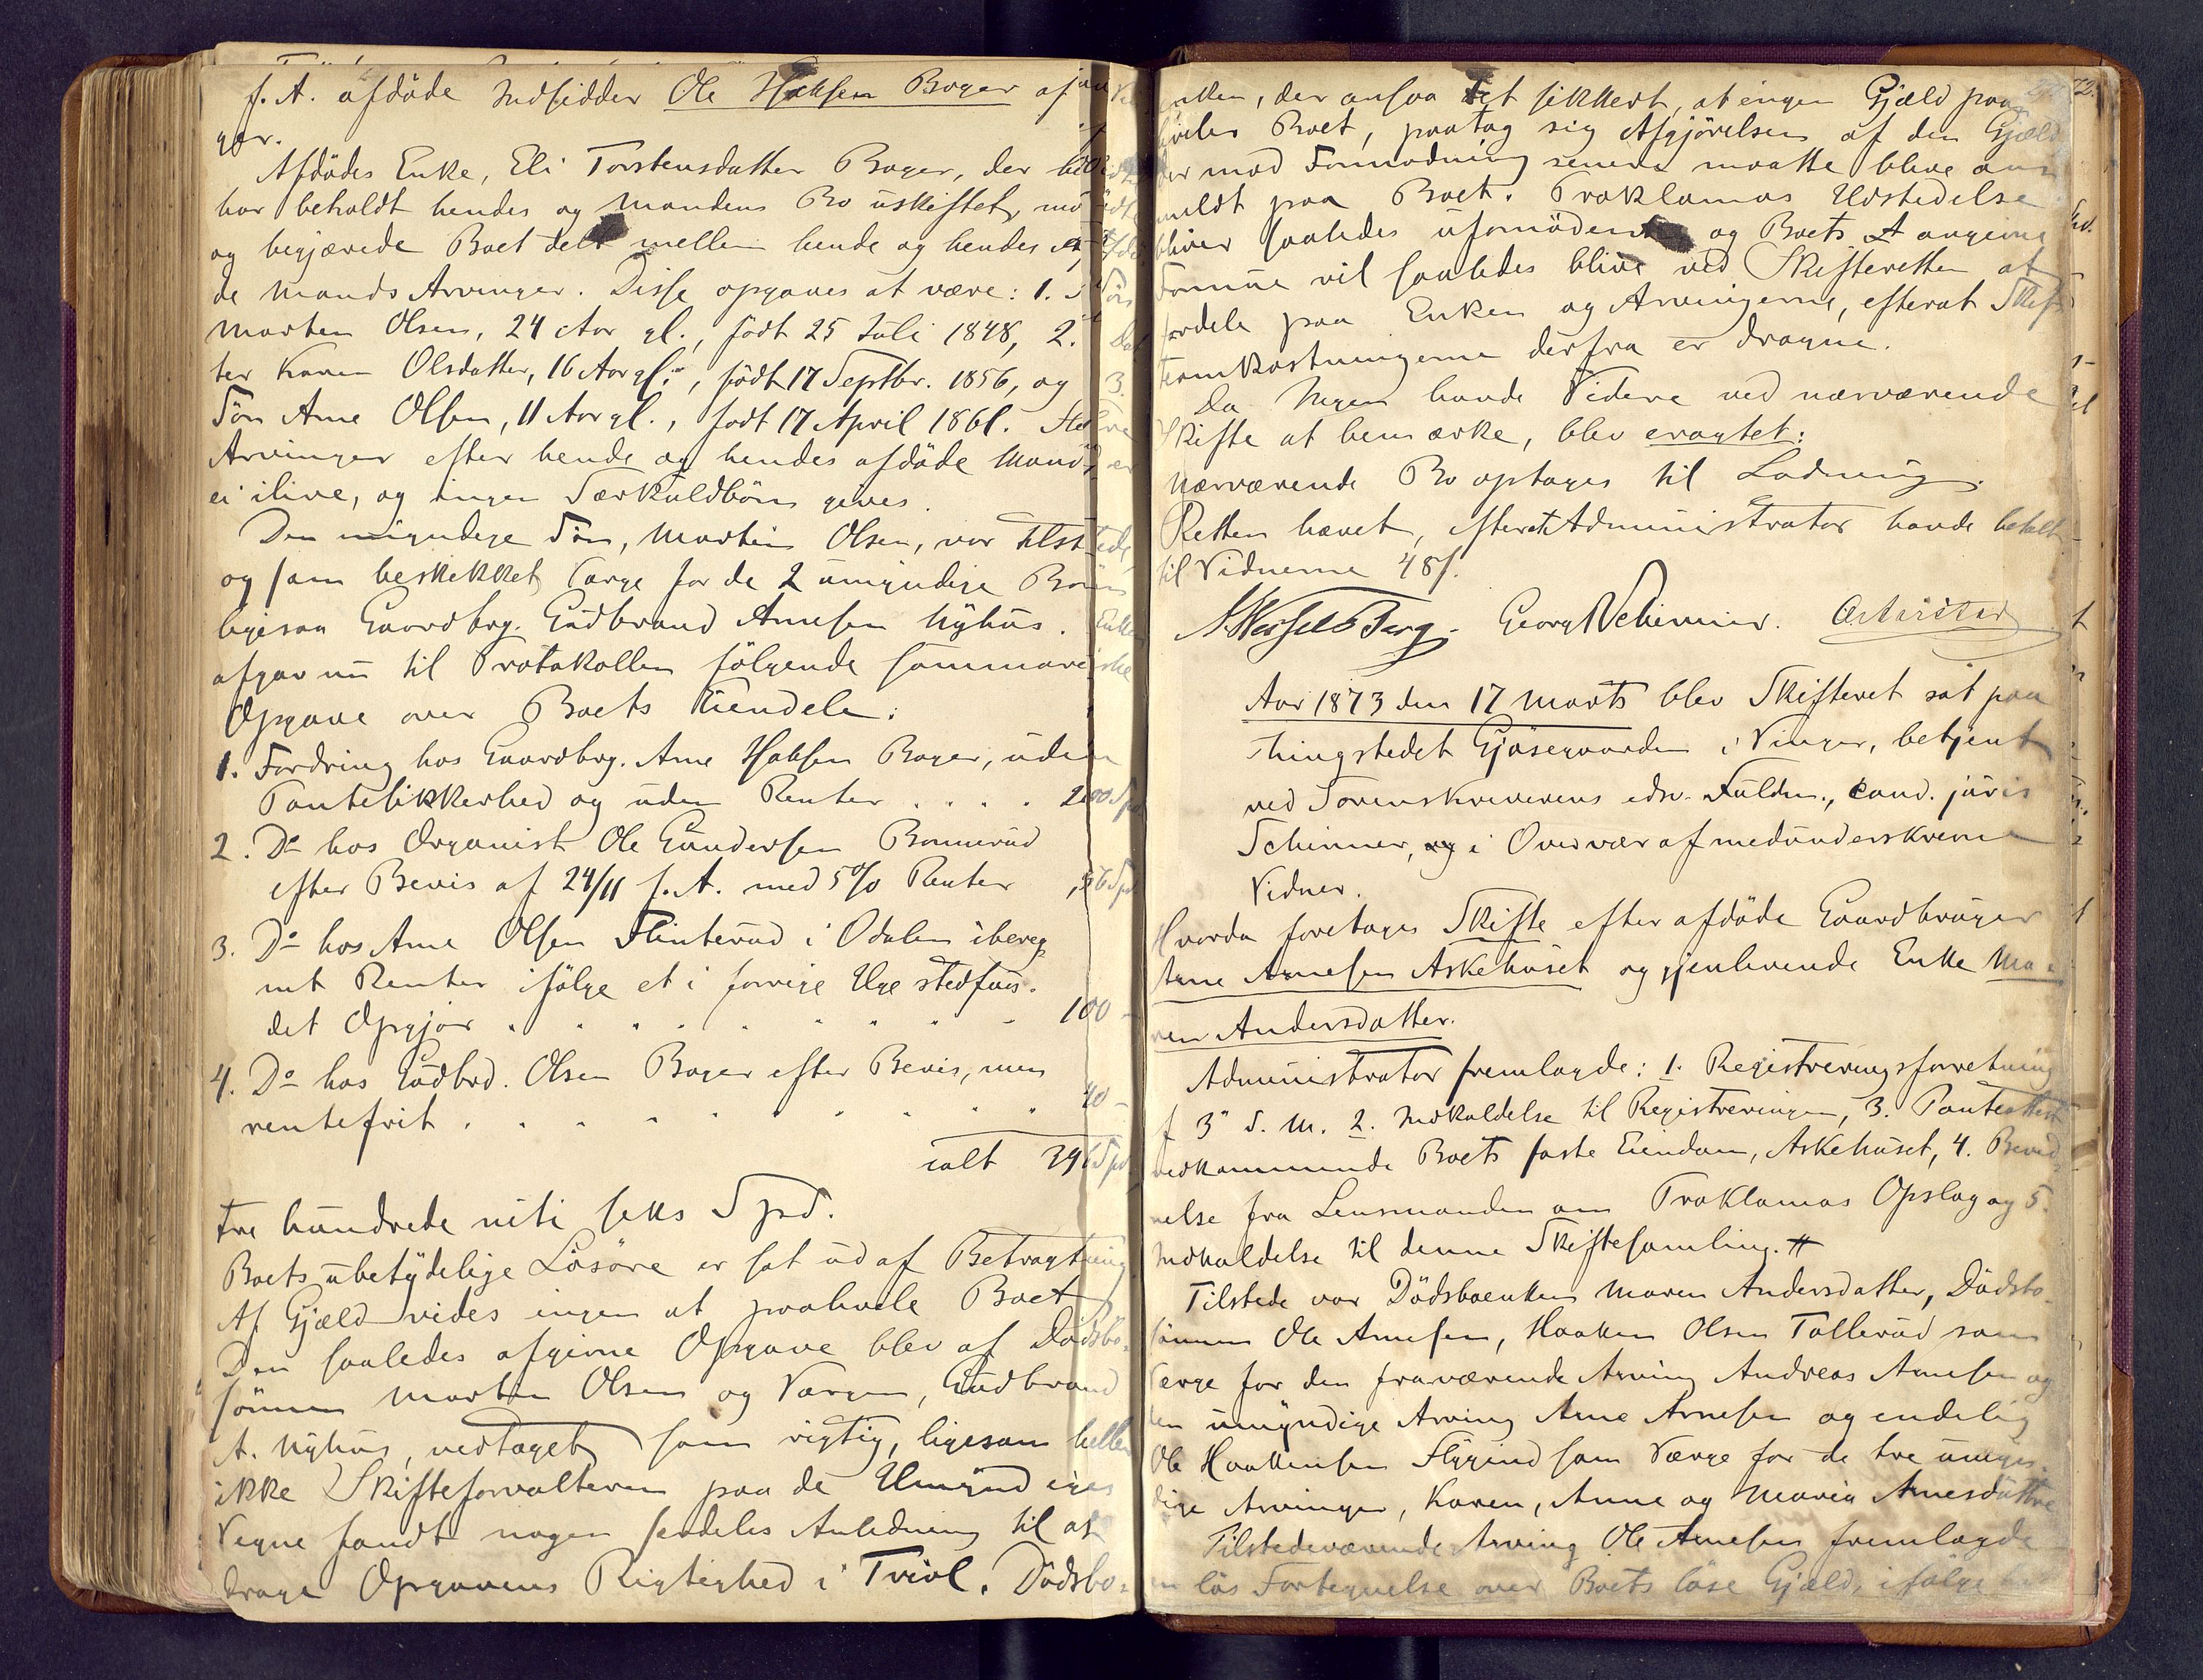 f. A. afdöde Indsidder Ole Halsen Boger afjan
ger.
Afdödes Enke, Eli Torstensdatter Boger, der hid
har beholdt hendes og Mandens Bo uskiftet, mödte
og begjærede Boet delt mellem hende og hendes afdö
de Mands Arvinger. Disse opgaves at være: 1. Sön
Morten Olsen, 24 Aar gl., födt 25 Juli 1848, 2. Dat
ter Karen Olsdatter, 16 Aar gl., födt 17 Septbr. 1856, og 3.
Sön Arne Olsen, 11 Aar gl., födt 17 April 1861. Flere
Arvinger efter hende og hendes afdöde Mand er
ei ilive, og ingen Særkuldbörn gives.
Den myndige Sön, Morten Olsen, var tilstede,
og som beskikket Værge for de 2 umyndige Börn
ligesaa Gaardbrg. Gudbrand Arnesen Nyhus. Enken
afgav nu til Protokollen fölgende summariske
Opgave over Boets Eiendele:
1. Fordring hos Gaardbrg. Arne Halsen Boger, uden
Pantesikkerhed og uden Renter . . . . 200 Spd
2. Do hos Organist Ole Gundersen Bonnerud
efter Bevis af 24/11 f. A. med 5% Renter 56 Spd.
3. Do hos Arne Olsen Flinterud i Odalen ibereg-
net Renter ifölge et i forrige Uge stedfun-
det Opgjör 100 -
4. Do hos Gudbrd. Olsen Boger efter Bevis, men
rentefrit . . . . 40 -
ialt 396 Spd
tre hundrede niti seks Spd.
Boets ubetydelige Lösöre er sat ud af Betragtning
Af Gjæld vides ingen at paahvile Boet
Den saaledes afgivne Opgave blev af Dödsbo-
sönnen Morten Olsen og Værgen, Gudbrand
A. Nyhus, vedtaget som rigtig, ligesom heller
ikke Skifteforvalteren paa de Umyndiges
Vegne fandt nogen særdeles Anledning til at
drage Opgavens Rigtighed i Tvivl. Dödsbo-
enken, der ansaa det sikkert, at ingen Gjæld paa-
hviler Boet, paatog sig Afgjörelsen af den Gjæld
der mod Formodning senere maatte blive an-
meldt paa Boet. Proklamas Udstedelse
bliver saaledes ufornöden og Boets angivne
Formue vil saaledes blive ved Skifteretten at
fordele paa Enken og Arvingerne, efterat Skif-
teomkostningerne derfra er dragne.
Da Ingen havde Videre ved nærværende
Skifte at bemærke, blev eragtet:
Nærværende Bo optages til Lodning.
Retten hævet, efterat Administrator havde betalt
til Vidnerne 48 s.
N Hesselberg. Georg Schinner.
Aar 1873 den 17 Marts blev Skifteret sat paa
Thingstedet Gjösegaarden i Vinger, betjent
ved Sorenskriverens edsv. Fuldm., cand. juris
Schinner, og i Overvær af medunderskrevne
Vidner.
Hvorda foretages Skifte efter afdöde Gaardbruger
Arne Arnesen Askehuset og gjenlevende Enke Ma-
ren Andersdatter.
Administrator fremlagde: 1. Registreringsforretning
af 3" d. M. 2. Indkaldelse til Registreringen, 3. Panteattest
vedkommende Boets faste Eiendom, Askehuset, 4. Bevid-
nelse fra Lensmanden om Proklamas Opslag og 5.
Indkaldelse til denne Skiftesamling. #
Tilstede var Dödsboenken Maren Andersdatter, Dödsbo-
sönnen Ole Arnesen, Haaken Olsen Tollerud som
Værge for den fraværende Arving Andreas Arnesen og
den umyndige Arving Arne Arnesen og endelig
Ole Haakensen Flygind som Værge for de tre umyn-
dige Arvinger, Karen, Anne og Maria Arnesdöttre
Tilstedeværende Arving Ole Arnesen fremlagde
en lös Fortegnelse over Boets löse Gjæld, ifölge